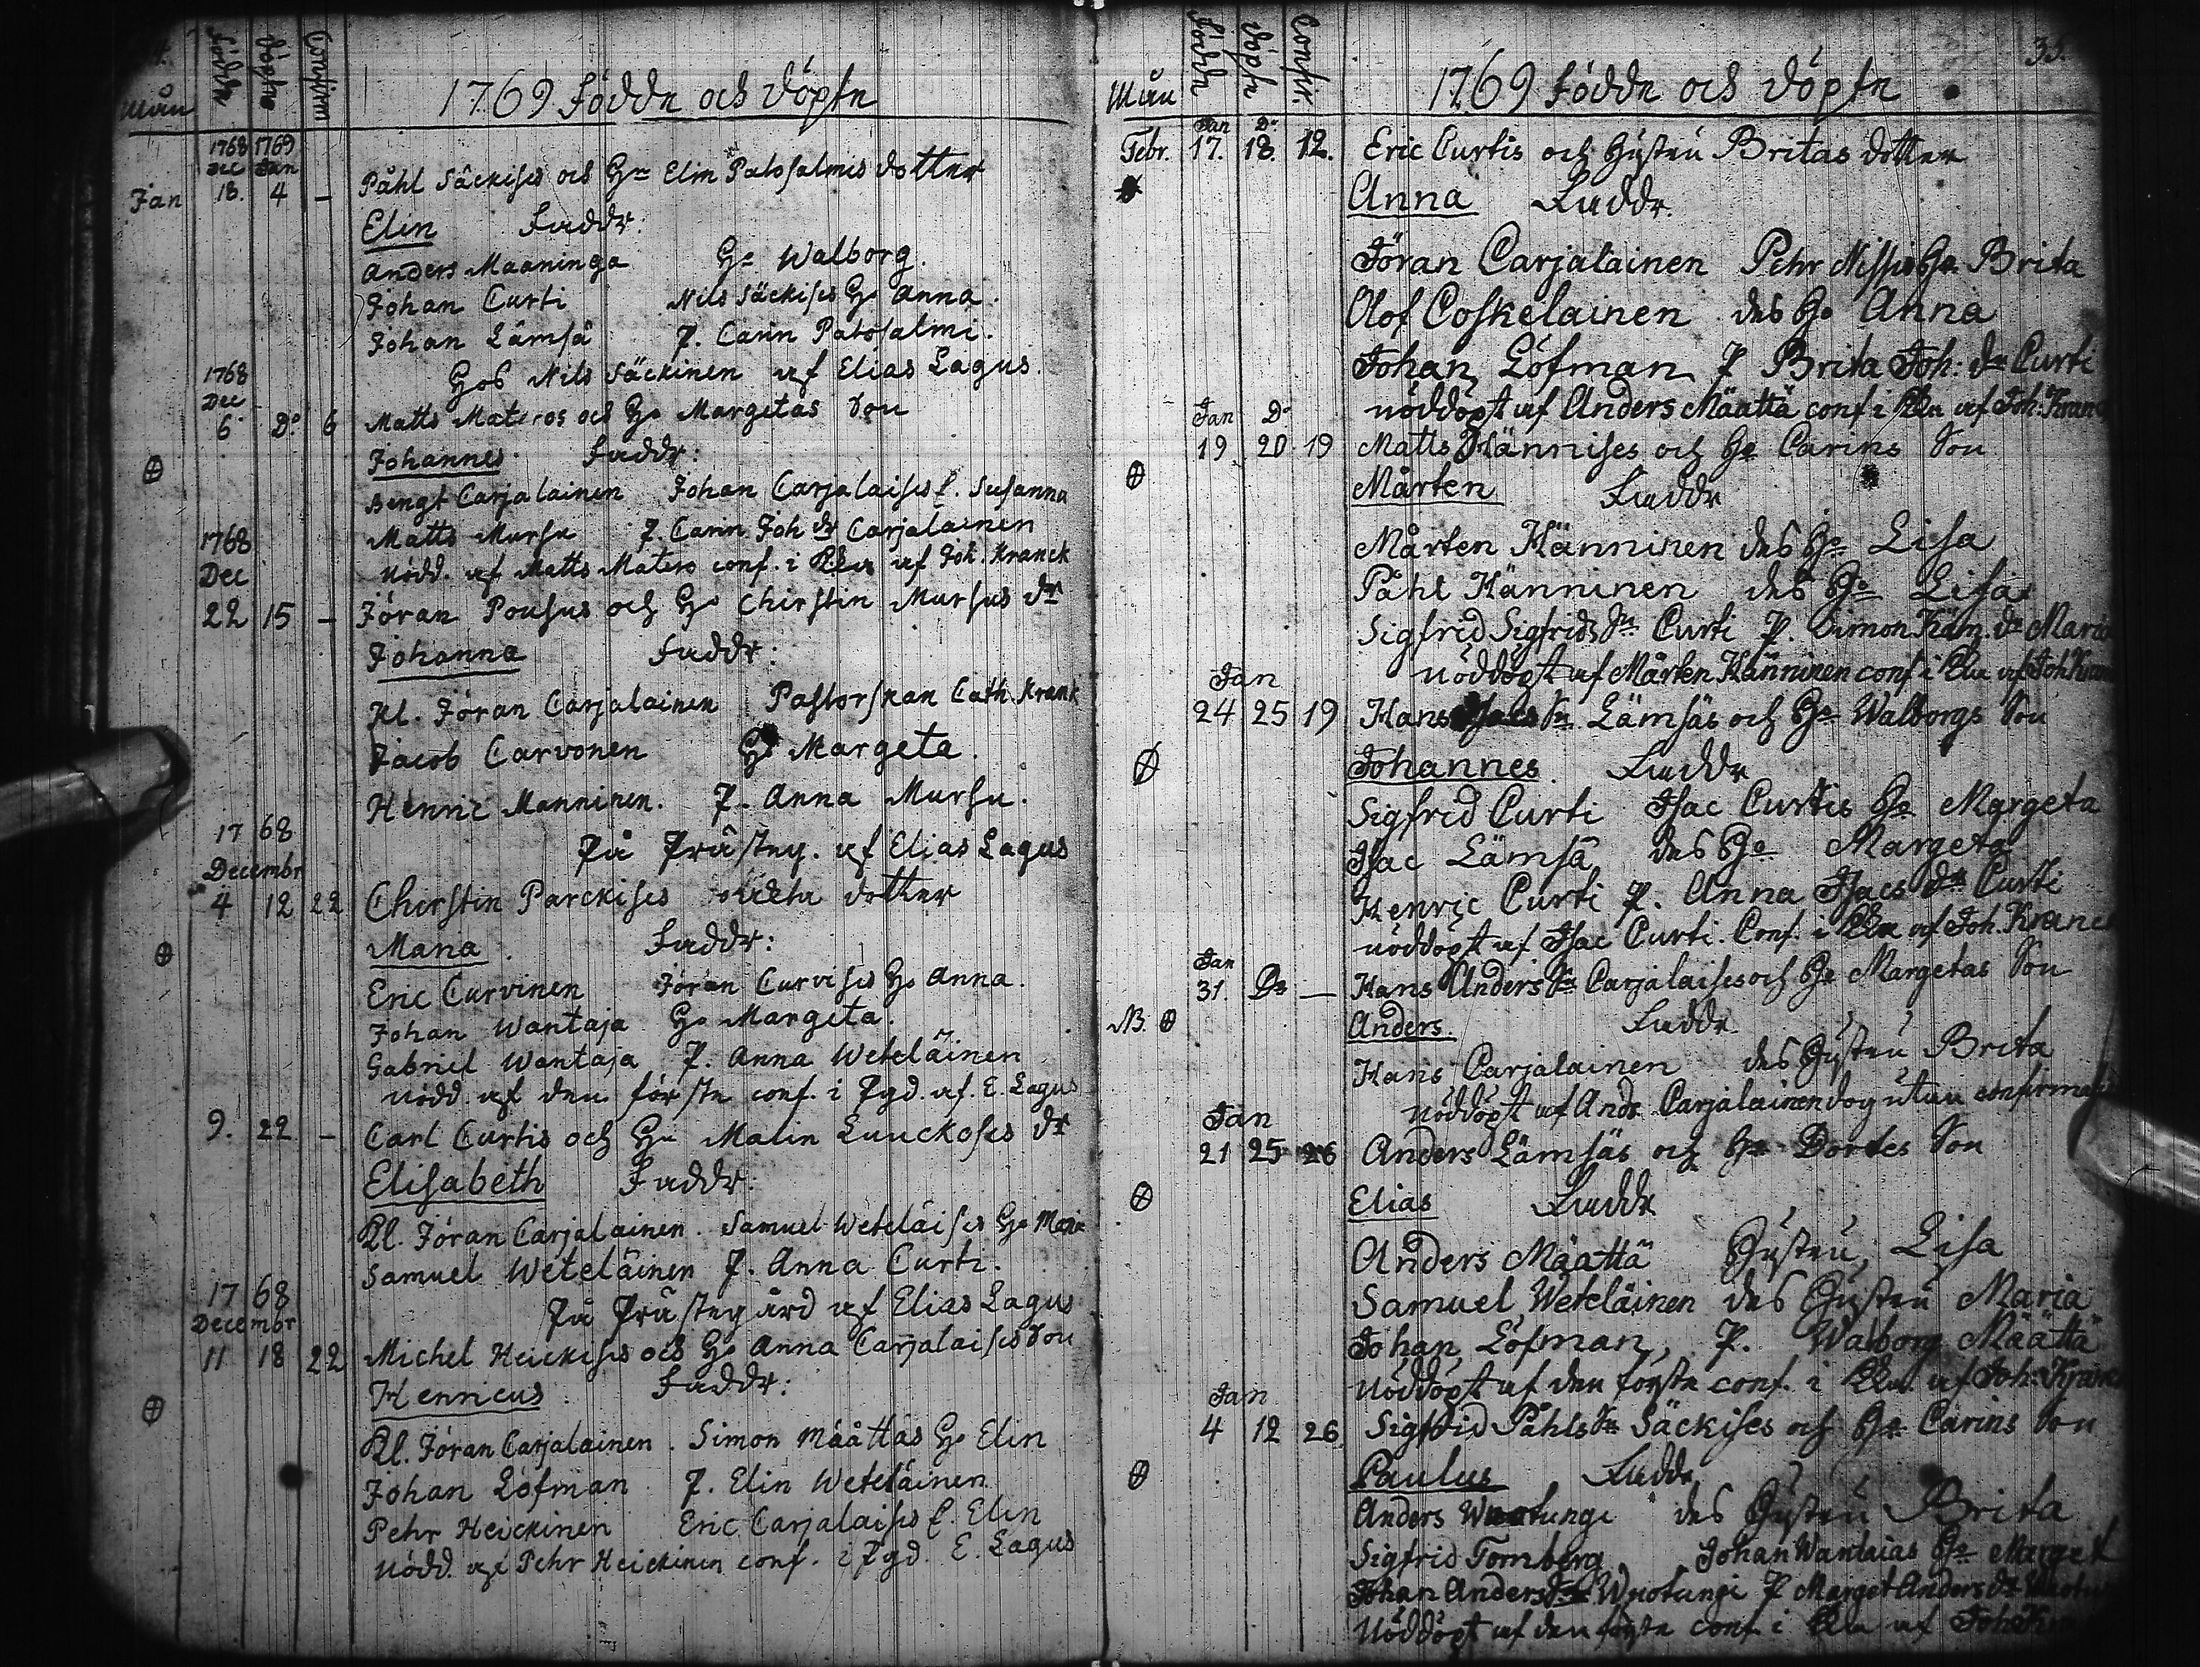 Mån Födde Döpte Confirm
1769 Födde och Döpte
1768 1769
Dec Jan
Jan 18. 4 — Påhl Säckises och Hu Elin Patosalmis dotter
Elin Faddr:
Anders Maaninga Hu Walborg.
Johan Curti Nils Säckises Hu Anna.
Johan Lämsä P. Carin Patosalmi.
Hos Nils Säckinen af Elias Lagus.
1768
Dec
6 Do 6 Matts Materos och Hu Margetas Son
Johannes Faddr:
Bengt Carjalainen Johan Carjalaises f. Susanna
Matts Mursu P. Carin Joh dr Carjalainen
nödd. af Matts Matero conf. i Kka af Joh. Kranck
1768
Dec
22 15 — Jöran Pousus och Hu Chirstin Mursus dr
Johanna Faddr:
Kl. Jöran Carjalainen Pastorskan Cath. Krank
Jacob Carvonen Hu Margeta.
Henric Manninen. P. Anna Mursu.
På Prästeg. af Elias Lagus
17 68
Decembr
4 12 22 Chirstin Parckises oächta dotter
Maria Faddr:
Eric Curvinen Jöran Curvises Hu Anna.
Johan Wantaja Hu Margeta.
Gabriel Wantaja P. Anna Weteläinen
nödd. af den förste conf. i Pgd. af. E. Lagus
9. 22 — Carl Curtis och Hu Malin Luuckoses dr
Elisabeth Faddr:
Kl. Jöran Carjalainen. Samuel Weteläises Hu Maria
Samuel Weteläinen P. Anna Curti.
På Prästegård af Elias Lagus
17 68
Decembr
11 18 22 Michel Heickises och Hu Anna Carjalaises Son
Henricus Faddr:
Kl. Jöran Carjalainen. Simon Määttäs Hu Elin
Johan Löfman P. Elin Weteläinen
Pehr Heickinen Eric Carjalaises f. Elin
nödd. af Pehr Heickinen conf. i Pgd. E. Lagus
35.
Mån Födde Döpte Confir.
1769 Födde och Döpte
Jan Do
Febr. 17. 18. 12. Eric Curtis och Hustru Britas dotter
Anna Faddr.
Jöran Carjalainen Pehr Nissis Hu Brita
Olof Coskelainen des Hu Anna
Johan Löfman P Brita Joh: dr Curti
nöddöpt af Anders Määttä conf i Kka af Joh: Kranc
Jan Do
19 20 19 Matts Hännises och Hu Carins Son
Mårten Faddr
Mårten Hänninen des Hu Lisa
Påhl Hänninen des Hu Lisa
Sigfrid Sigfrids Sn Curti P. Simon Häm. dr Maria
nöddöpt af Mårten Hänninen conf i Kka af Joh Kran
Jan
24 25 19 Hans Sn Lämsäs och Hu Walborgs Son
Johannes. Faddr
Sigfrid Curti Isac Curtis Hu Margeta
Isac Lämsä des Hu Margeta
Henric Curti P. Anna Isacs dr Curti
nöddöpt af Isac Curti. Conf. i Kka af Joh. Kranc
Jan
31. Do — Hans Anders Sn Carjalaises och Hu Margetas Son
NB Anders. Faddr
Hans Carjalainen des Hustru Brita
nöddöpt af Andr Carjalainen dog utan confirmat
Jan
21 25 26 Anders Lämsäs och Hu Dordes Son
Elias Faddr
Anders Määttä Hustru Lisa
Samuel Weteläinen des Hustru Maria
Johan Löfman, P. Walborg Määttä
nöddöpt af den förste conf. i Kka af Joh: Kranc
Jan
4 12 26. Sigfrid Påhls Sn Säckises och Hu Carins Son
Paulus Faddr
Anders Wuotungi des Hustru Brita
Sigfrid Tornberg Johan Wantaias Hu Marget
Johan Anders Sn Wuotungi P Marget Anders dr
Nöddöpt af den förste conf i Kka af Joh Kr